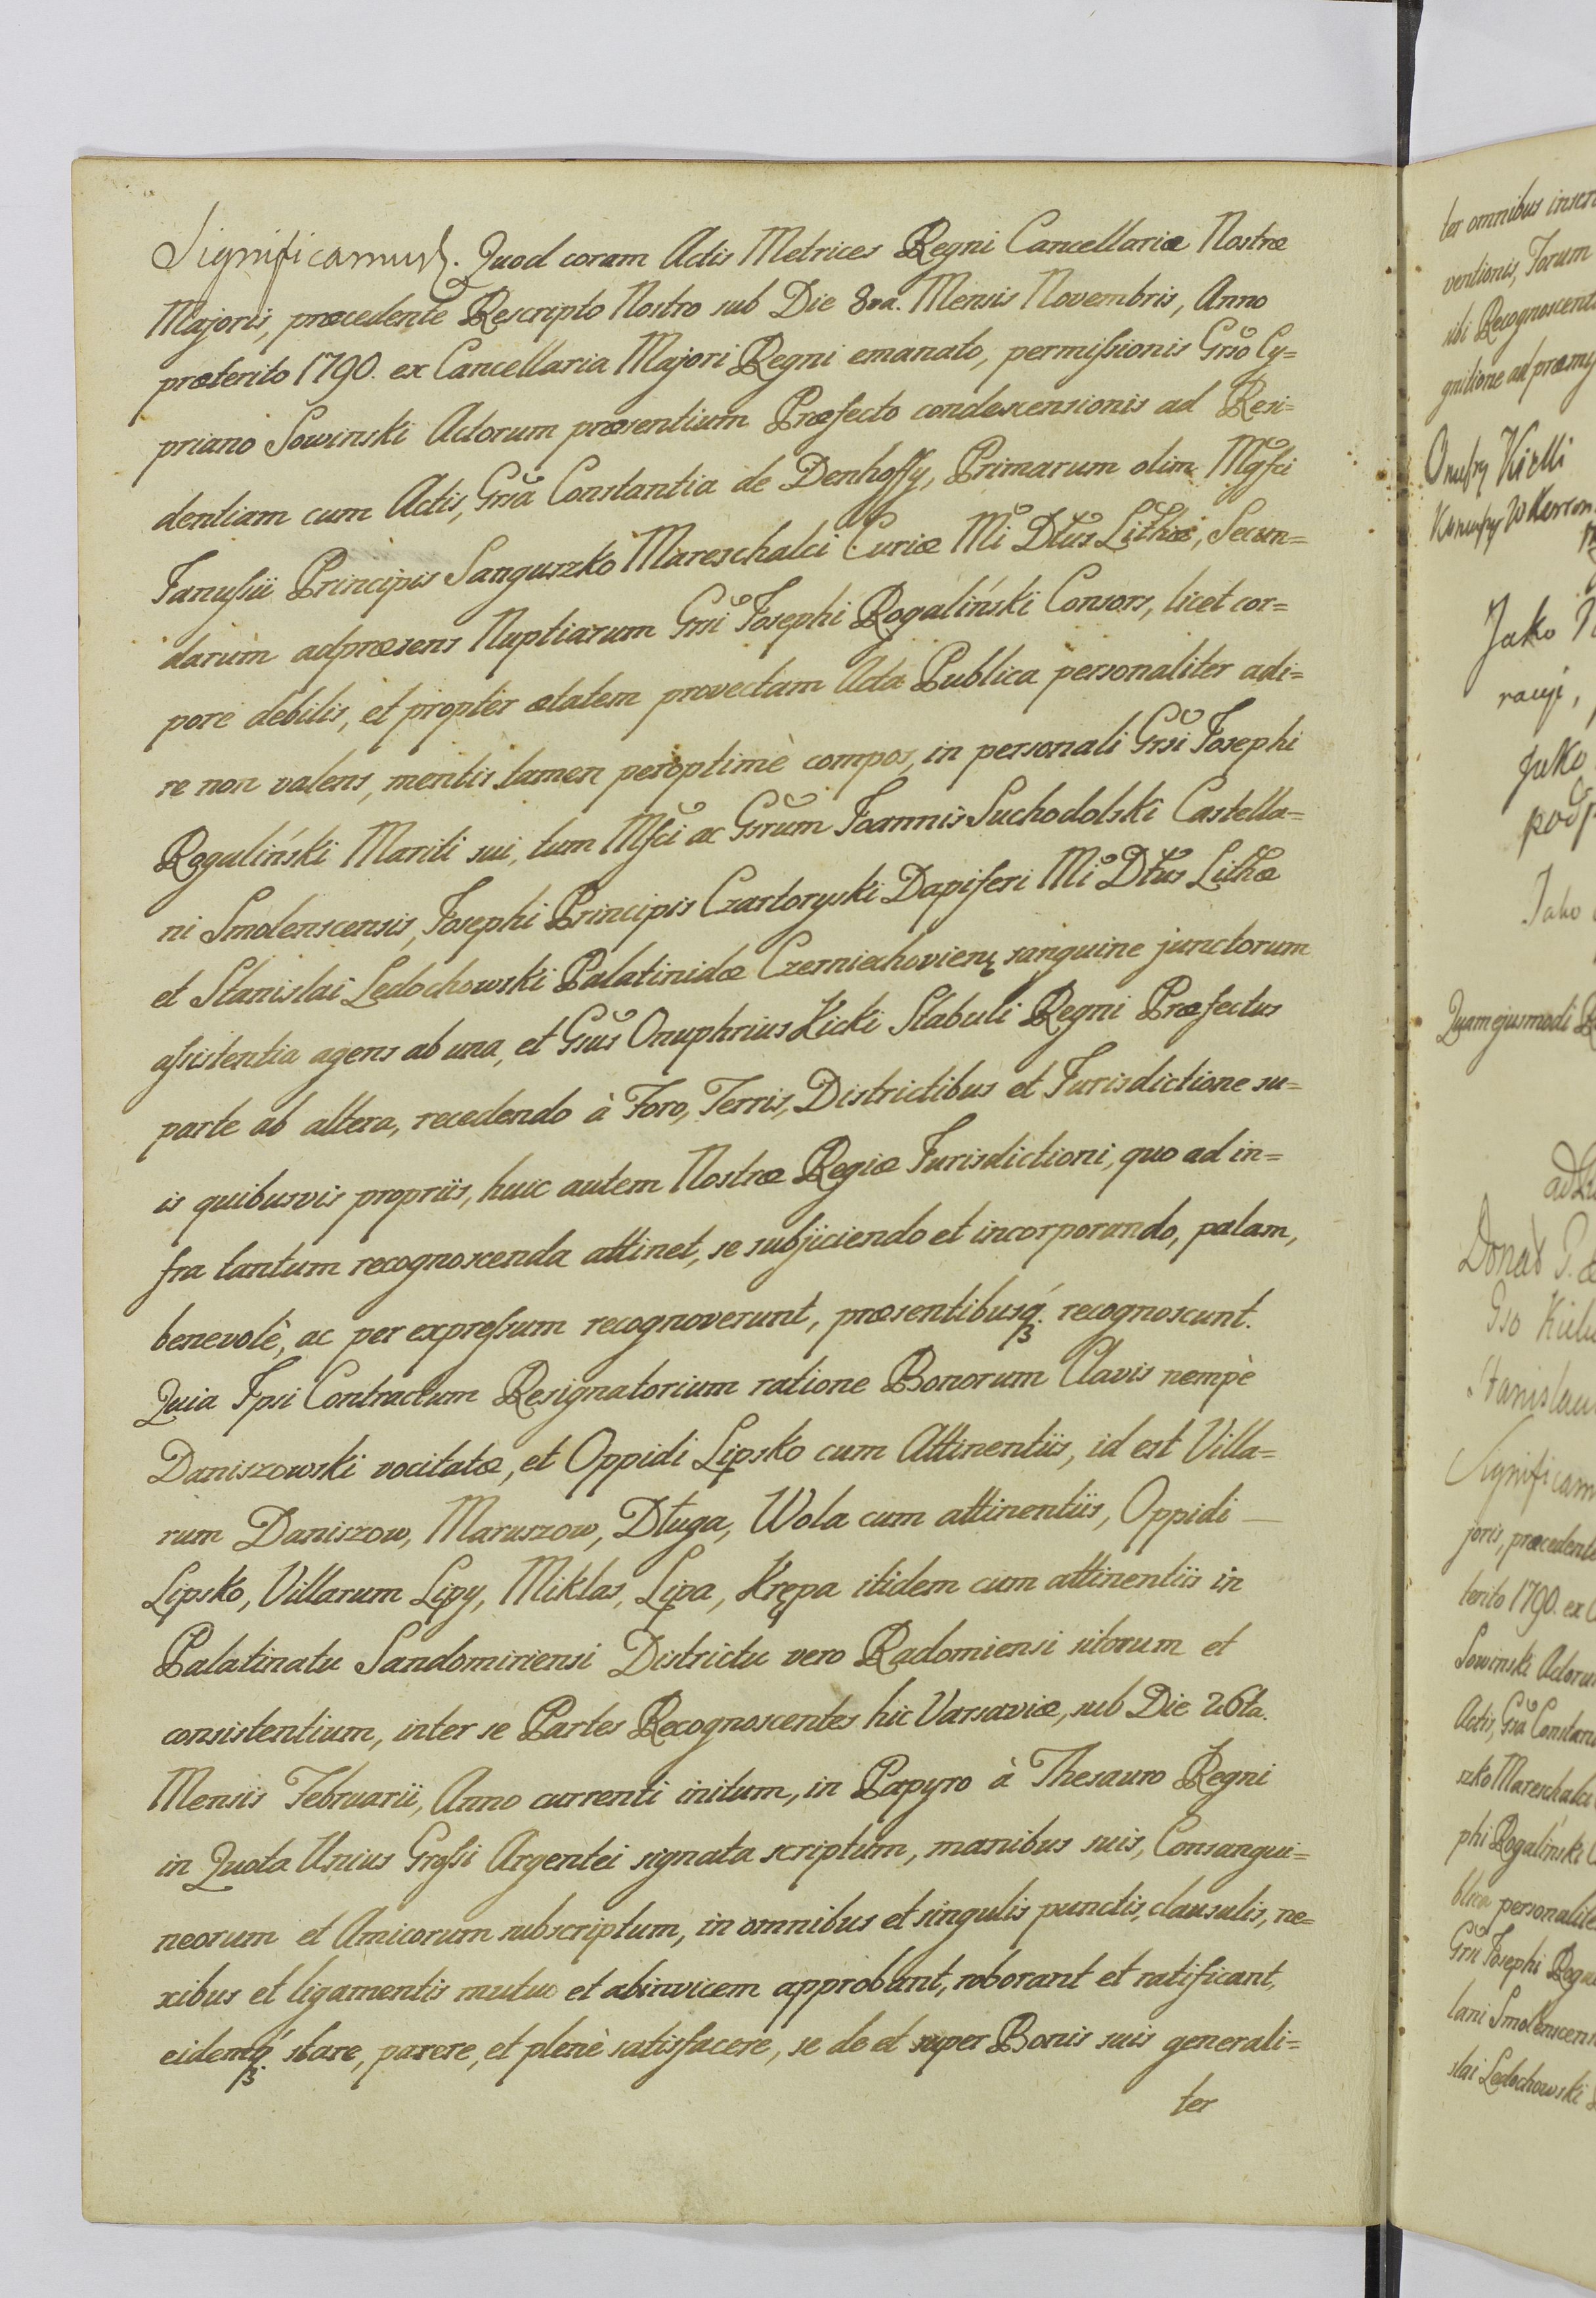 Significamus. Quod coram Actis Metrices Regni Cancellariæ Nostræ
Majoris, præcedente Rescripto Nostro sub Die 8va. Mensis Novembris, Anno
præterito 1790. ex Cancellaria Majori Regni emanato, permiſsionis Grso Cy=
priano Sowinski Actorum præsentium Præfecto condescensionis ad Resi=
dentiam cum Actis, Grsa Constantia de Denhoffy, Primarum olim Mgfci
Januſsii Principis Sanguszko Mareschalci Curiæ Mi Dtus Lithæ, Secun=
darum adpræsens Nuptiarum Grsi Josephi Rogaliński Consors, licet cor=
pore debilis, et propter ætatem provectam Acta Publica personaliter adi=
re non valens, mentis tamen peroptimè compos, in personali Grsi Josephi
Rogaliński Mariti sui, tum Mfci ac Gsrum Joannis Suchodolski Castella=
ni Smolenscensis, Josephi Principis Czartoryski Dapiferi Mi Dtus Lithæ
et Stanislai Ledochowski Palatinidæ Czerniechovien: sanguine junctorum
aſsistentia agens ab una, et Gsus Onuphrius Kicki Stabuli Regni Præfectus
parte ab altera, recedendo à Foro, Terris, Districtibus et Jurisdictione su=
is quibusvis propriis, huic autem Nostræ Regiæ Jurisdictioni, quo ad in=
fra tantum recognoscenda attinet, se subjiciendo et incorporando, palam,
benevolè, ac per expreſsum recognoverunt, præsentibusq́. recognoscunt.
Quia Ipsi Contractum Resignatorium ratione Bonorum Clavis nempè
Daniszowski vocitatæ, et Oppidi Lipsko cum Attinentiis, id est Villa=
rum Daniszow, Maruszow, Długa, Wola cum attinentiis, Oppidi —
Lipsko, Villarum Lipy, Miklas, Lipa, Krępa itidem cum attinentiis in
Palatinatu Sandomiriensi Districtu vero Radomiensi sitorum et
consistentium, inter se Partes Recognoscentes hic Varsaviæ, sub Die 26ta.
Mensis Februarii, Anno currenti initum, in Papyro à Thesauro Regni
in Quota Unius Groſsi Argentei signata scriptum, manibus suis, Consangui=
neorum et Amicorum subscriptum, in omnibus et singulis punctis, clausulis, ne=
xibus et ligamentis mutuo et abinvicem approbant, roborant et ratificant,
eidemq́. stare, parere, et plenè satisfacere, se de et super Bonis suis generali=
ter
ter omnibus
ventionis, Forum
sibi
gnitione
Onufry Kicki
Jako
Jako
Jako
Quam ejusmodi
Donat
Gso
Stanislaus
joris, præcedente
terito 1790. ex
Sowinski
Actis, Gsa
szko Mareschalci
phi Rogaliński
blica
Grsi Josephi
lani
slai Ledochowski